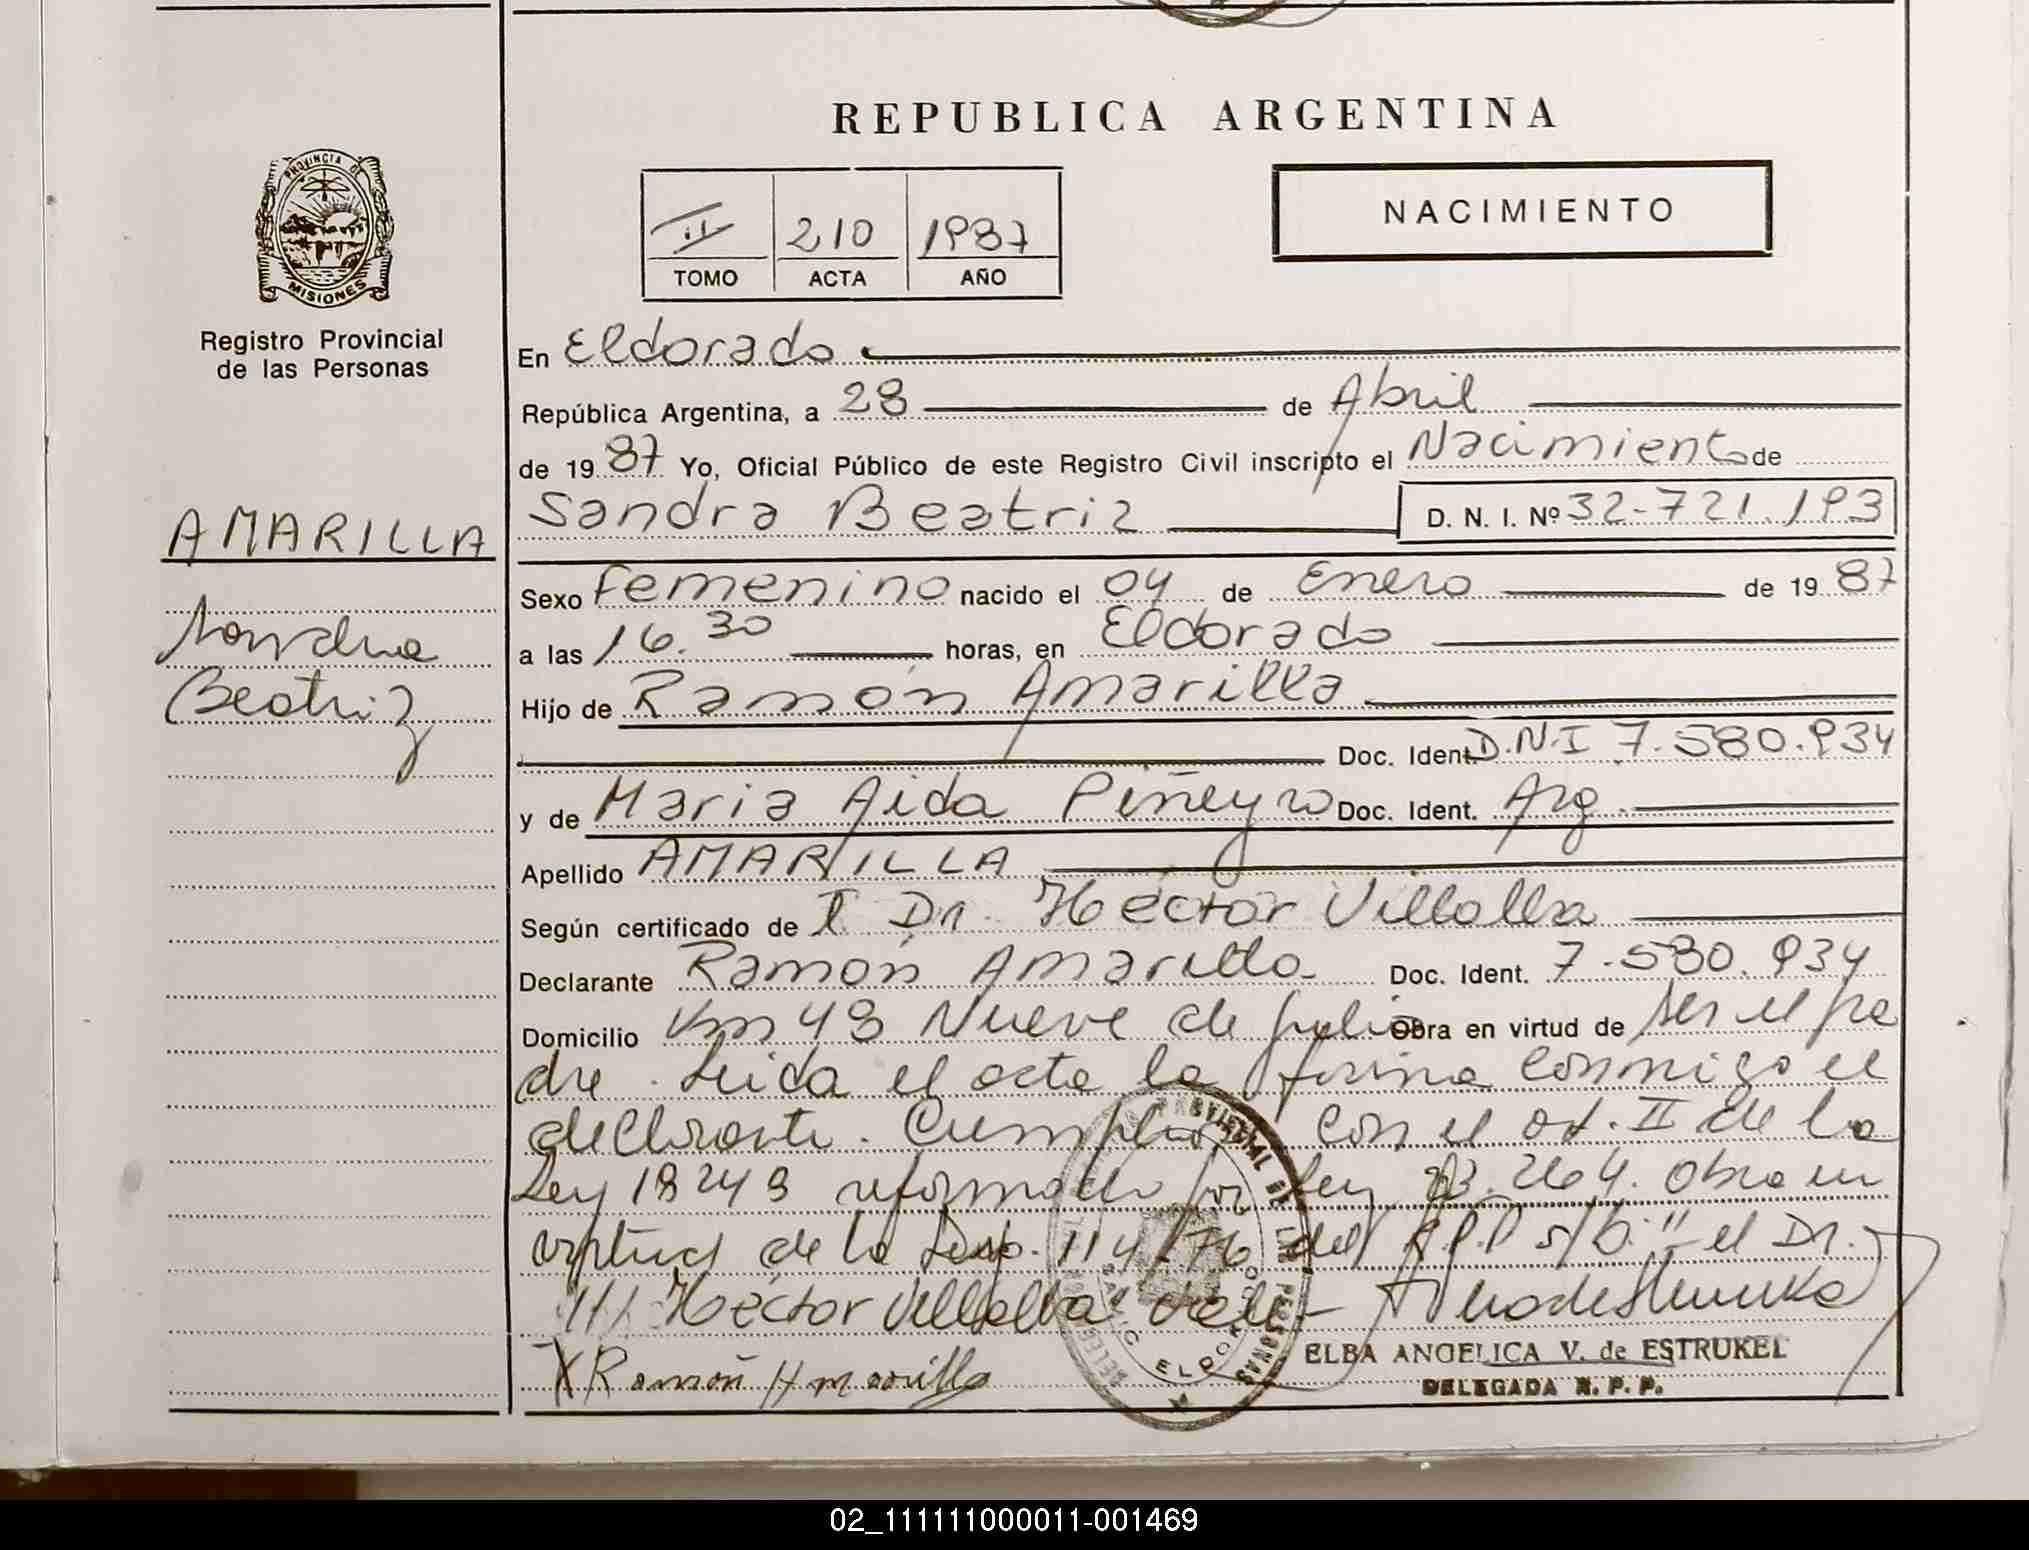 REPUBLICA ARGENTINA
PROVINCIA DE
MISIONES
Registro Provincial
de las Personas
II 210 1987
TOMO ACTA AÑO
NACIMIENTO
En Eldorado
República Argentina, a 28 de Abril
de 1987 Yo, Oficial Público de este Registro Civil inscripto el Nacimiento de
AMARILLA
Sandra
Beatriz
Sandra Beatriz D. N. I. Nº 32-721.193
Sexo Femenino nacido el 04 de Enero de 1987
a las 16.30 horas, en Eldorado
Hijo de Ramón Amarilla
Doc. Ident. D.N.I 7.580.934
y de Maria Aida Piñeyro Doc. Ident. Arg.
Apellido AMARILLA
Según certificado de Dr. Héctor Villalba
Declarante Ramón Amarilla Doc. Ident. 7.580.934
Domicilio Km 48 Nueve de Julio Obra en virtud de ser el pa
dre. Leida el acta la firma conmigo el
declarante. Cumplió con el art. II de la
Ley 18248 reformado por Ley 23.264. Obra en
virtud de la Disp. 114/76 del R.P.P s/b: "el Dr.
/// Héctor Villalba" vale-
X Ramón Amarilla
ELBA ANGELICA V. de ESTRUKEL
DELEGADA R. P. P.
02_111111000011-001469